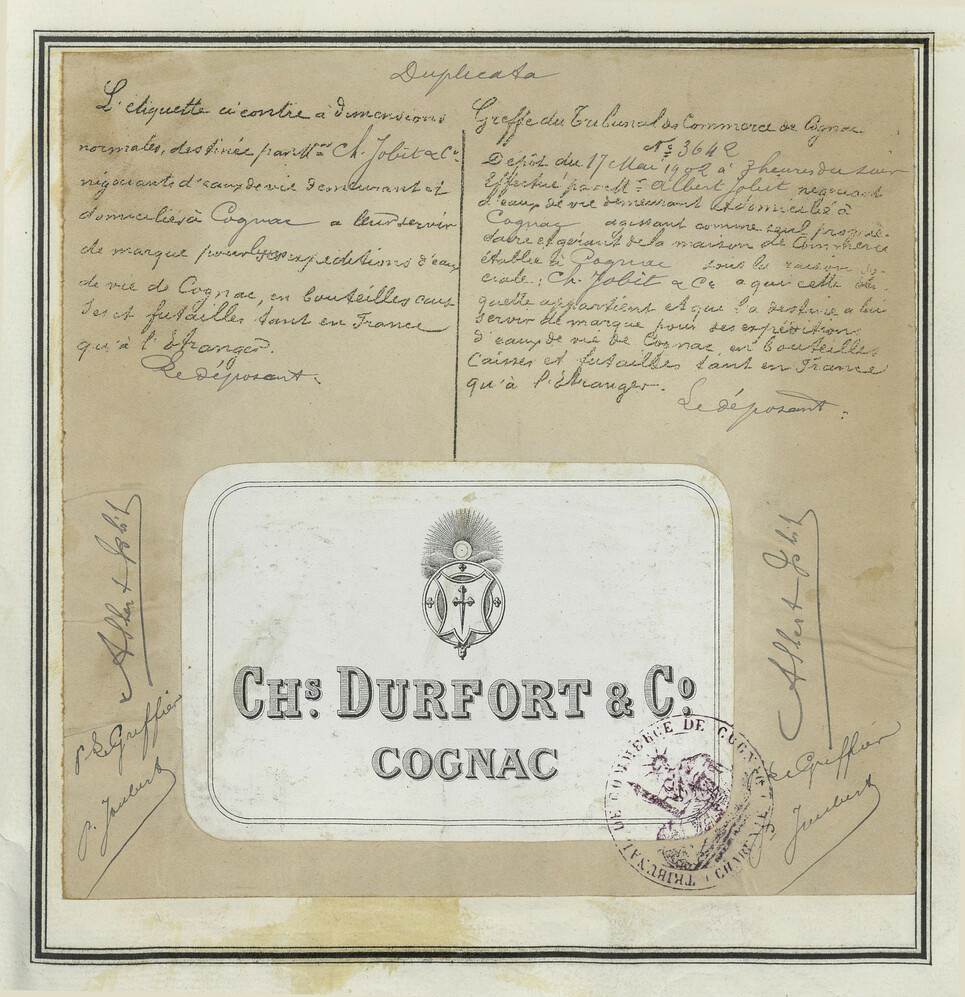 Duplicata
L'étiquette ci contre à dimensions
normales, destinée par MM. Ch. Jobit & Cie
négociants d'eaux de vie demeurant et
domiciliés à Cognac a leur servir
de marque pour les expéditions d'eaux
de vie de Cognac, en bouteilles cais
ses et futailles tant en France
qu'à l'Etranger.
Le déposant.
Greffe du Tribunal de Commerce de Cognac
No 3642
Dépôt du 17 Mai 1902 à 3 heures du soir
Effectué par M. Albert Jobit négociant
d'eaux de vie demeurant et domicilié à
Cognac agissant comme seul proprié-
taire et gérant de la maison de Commerce
établie à Cognac sous la raison so-
ciale: Ch. Jobit & Ce a qui cette éti-
quette appartient et qui l'a destinée a leur
servir de marque pour ses expéditions
d'eaux de vie de Cognac, en bouteilles
caisses et futailles tant en France
qu'à l'Etranger.
Le déposant:
Albert Jobit
p. Le Greffier
p. Joubert
CHs. DURFORT & Co.
COGNAC
TRIBUNAL DE COMMERCE DE COGNAC (CHARENTE)
Albert Jobit
Le Greffier
Joubert